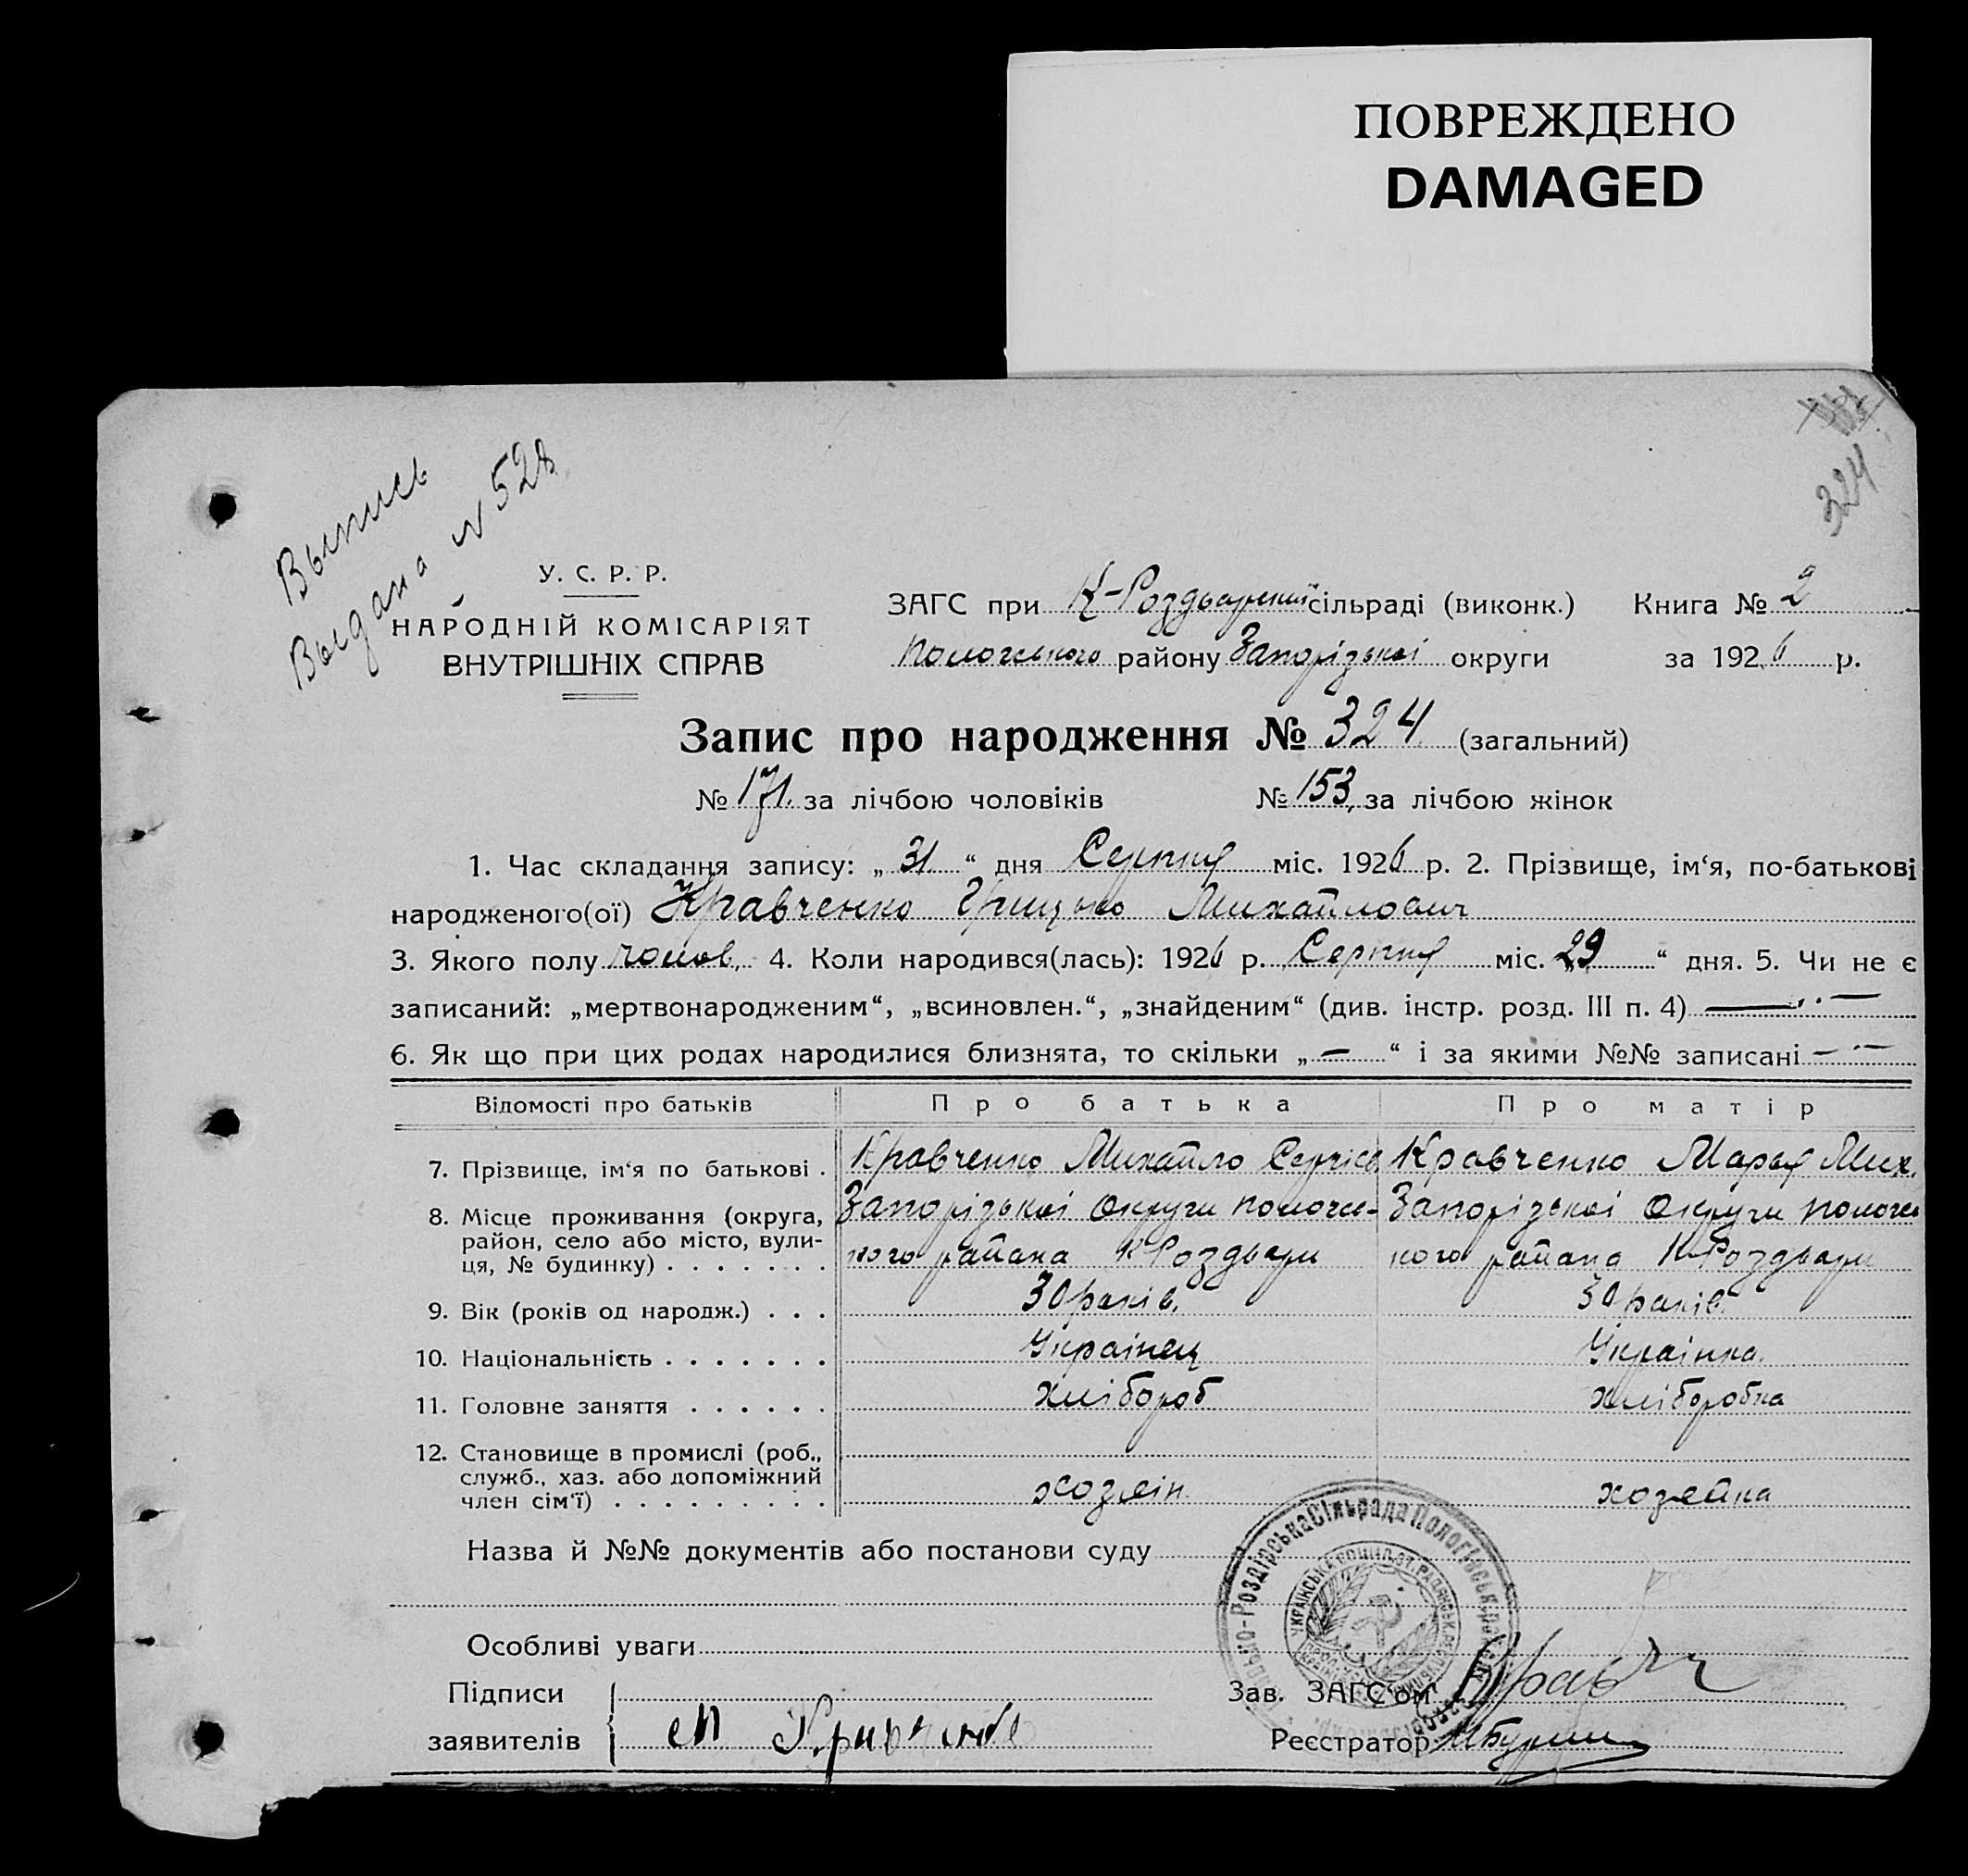 ПОВРЕЖДЕНО
DAMAGED
324
Выпись
Выдана N 528
У. С. Р. Р.
НАРОДНІЙ КОМІСАРІЯТ
ВНУТРІШНІХ СПРАВ
ЗАГС при К-Роздорській сільраді (виконк.) Книга № 2
Пологського району Запорізької округи за 1926 р.
Запис про народження № 324 (загальний)
№ 171. за лічбою чоловіків № 153, за лічбою жінок
1. Час складання запису: „ 31 “ дня Серпня міс. 1926 р. 2. Прізвище, ім‘я, по-батькові
народженого(ої) Кравченко Грицько Михайлович
3. Якого полу чолов. 4. Коли народився(лась): 1926 р. Серпня міс. „29“ дня. 5. Чи не є
записаний: „мертвонародженим“, „всиновлен.“, „знайденим“ (див. інстр. розд. III п. 4) —
6. Як що при цих родах народилися близнята, то скільки „ — “ і за якими №№ записані —
Відомості про батьків Про батька Про матір
7. Прізвище, ім‘я по батькові . Кравченко Михайло Сергієв Кравченко Марья Мих.
8. Місце проживання (округа, Запорізької Округи Пологсь- Запорізької Округи Пологсь
район, село або місто, вули- кого района К Роздори кого района К-Роздори
ця, № будинку) . . . . . . .
9. Вік (років од народж.) . . . 30 років. 30 років.
10. Національність . . . . . . . Українец Українка.
11. Головне заняття . . . . . . хлібороб хліборобка
12. Становище в промислі (роб.,
служб., хаз. або допоміжний
член сім‘ї) . . . . . . . . . хозяін. хозяйка
Назва й №№ документів або постанови суду
Особливі уваги
Підписи
заявителів М Кравченко
Зав. ЗАГС‘ом
Реєстратор
Роздірська Сільрада Пологівськ.
УКРАЇНСЬКА СОЦІЯЛ. СТ. РАДЯНСЬК. РЕСПУБЛІ